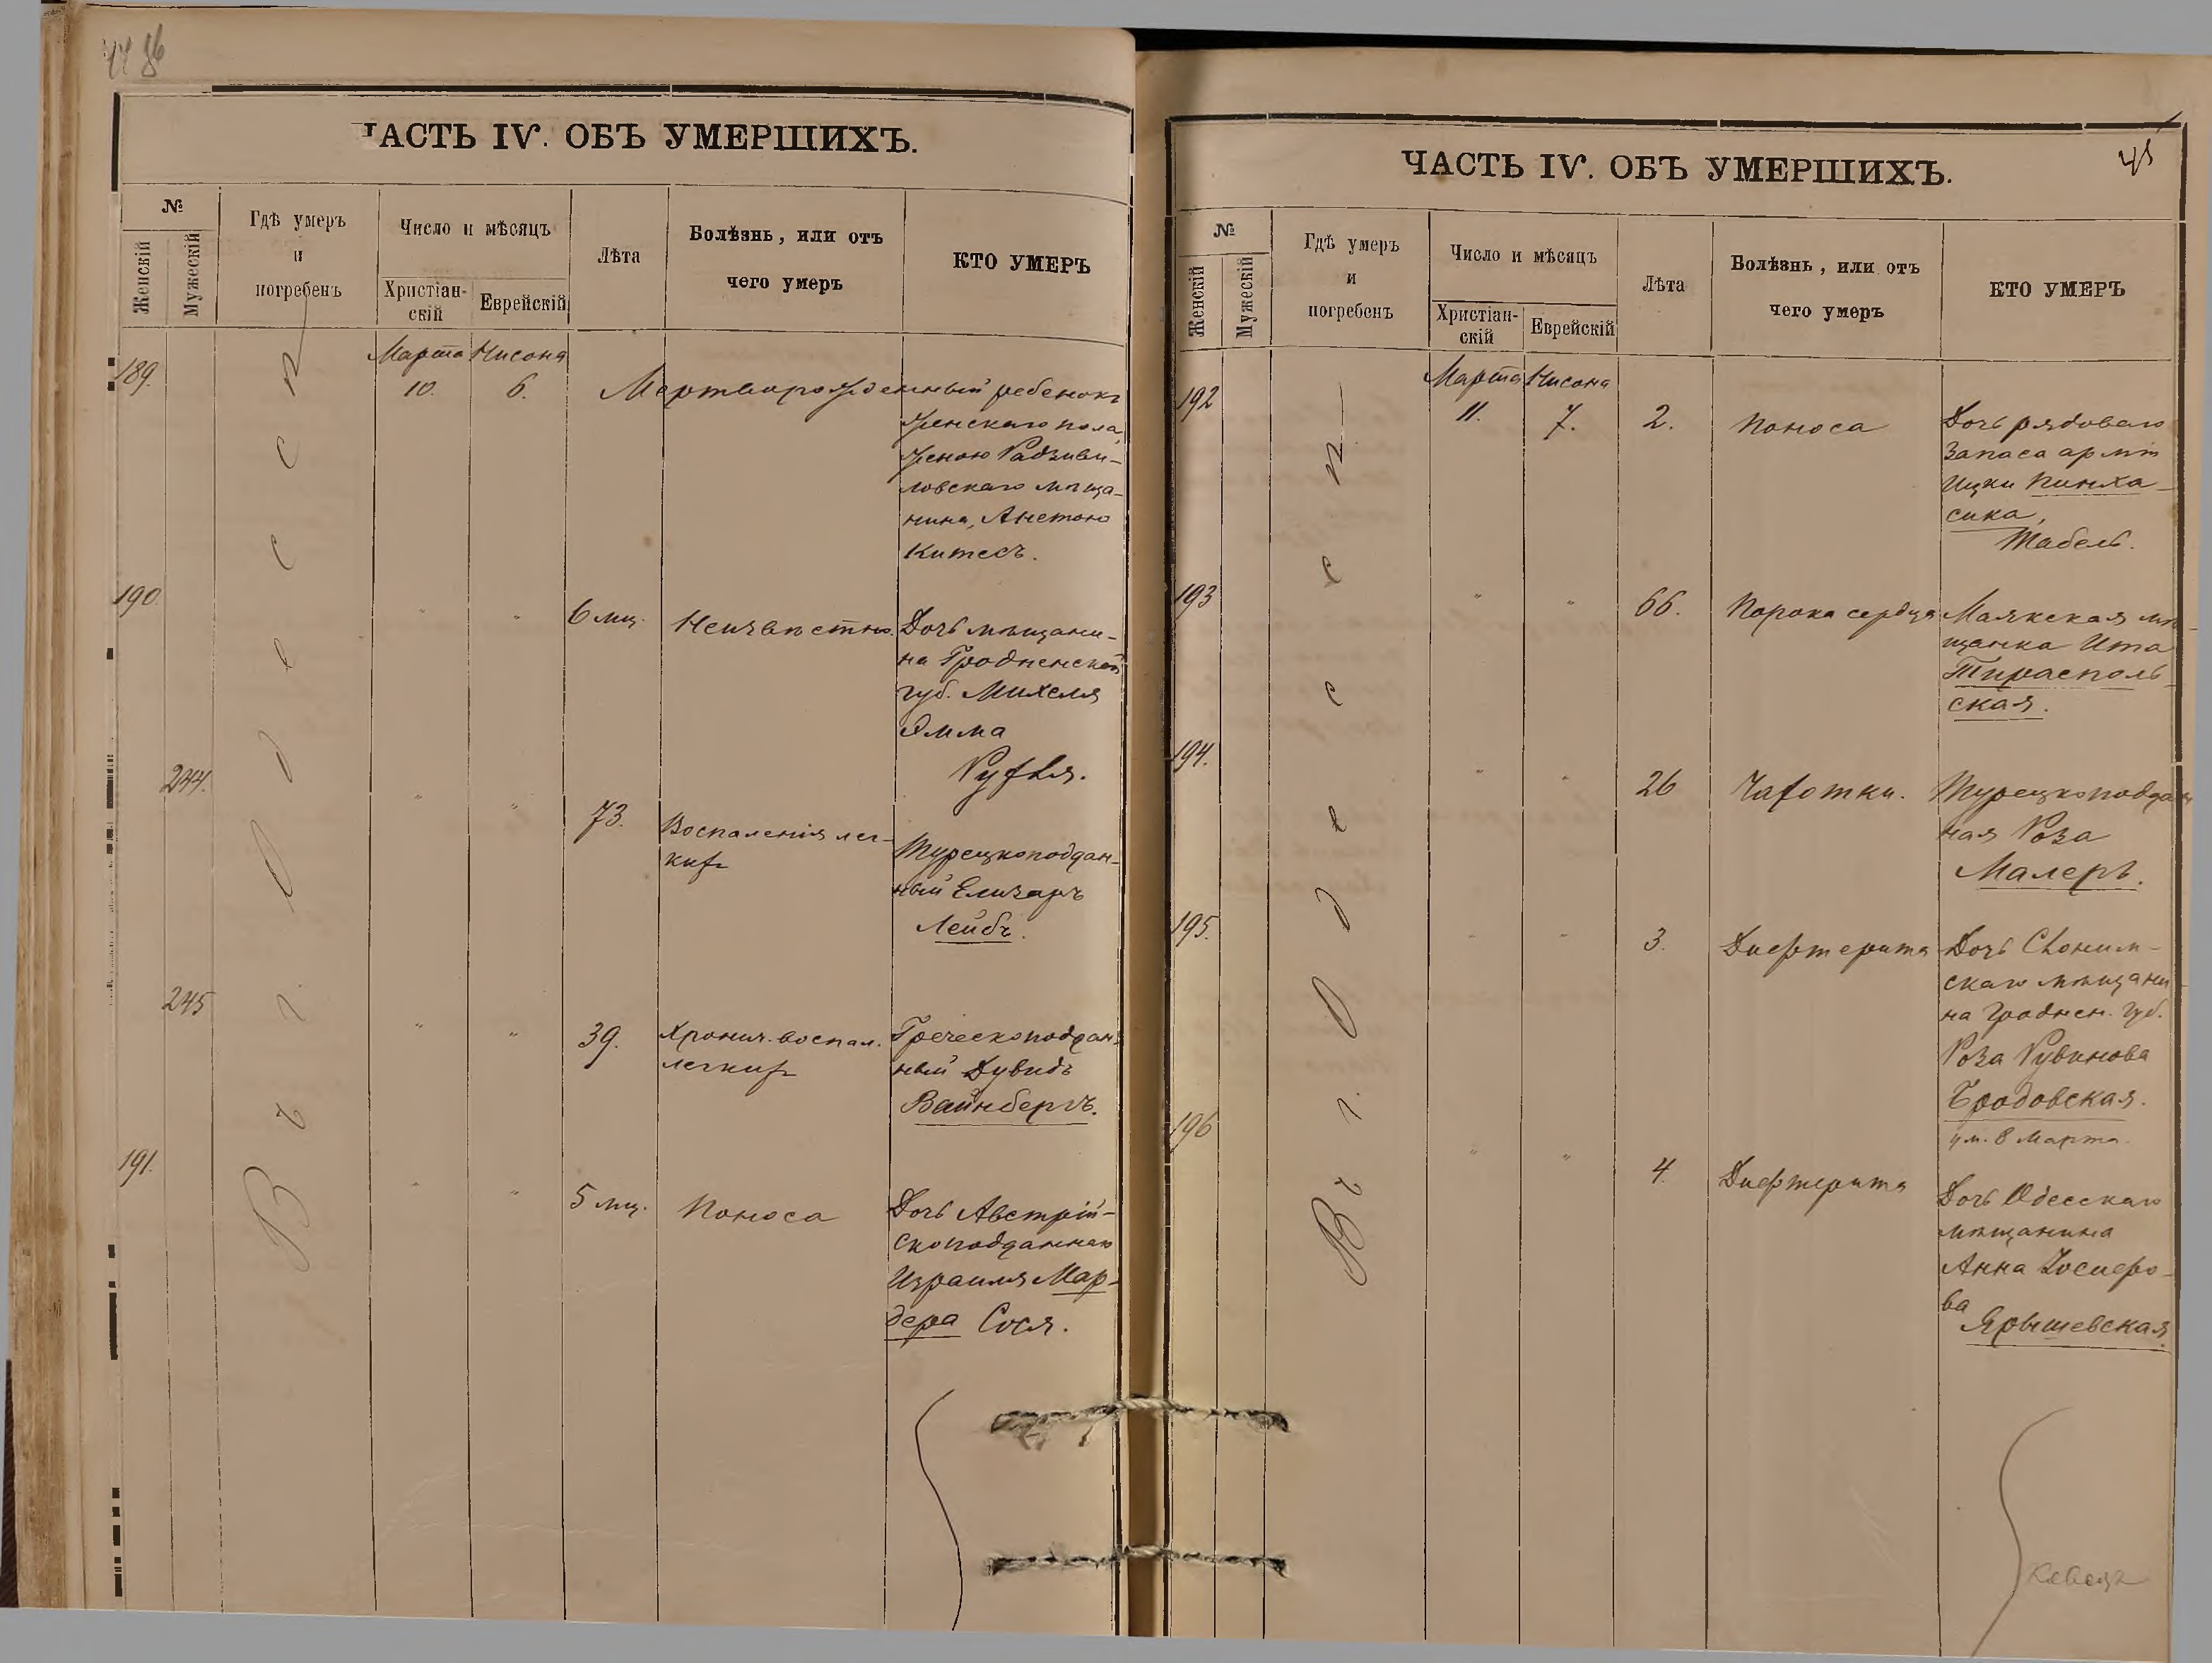 86
ЧАСТЬ IV. ОБЪ УМЕРШИХЪ.
№
Женскій
Мужескій
Гдѣ умеръ
и
погребенъ
Число и мѣсяцъ
Христіан-
скій
Еврейскій
Лѣта
Болѣзнь, или отъ
чего умеръ
КТО УМЕРЪ
Въ г. Одессѣ
Марта Нисона
189. 10. 6. Мертворожденный ребенокъ
женскаго пола
женою Радзиви-
ловскаго мѣща-
нина, Анетою
Китесъ.
190. " " 6 мц. Неизвѣстно. Дочь мѣщани-
на Гродненской
губ. Михеля
Эмма
244. " " 73. Воспаленія лег-
кихъ
Турецкоподдан-
ный Елизаръ
Лейбъ.
245 " " 39. Хронич. воспал.
легкихъ
Греческоподдан-
ный Дувидъ
Вайнбергъ.
191. " " 5 мц. Поноса Дочь Австрій-
скоподданнаго
Израиля Мар-
дера Сося.
45
ЧАСТЬ IV. ОБЪ УМЕРШИХЪ.
№
Женскій
Мужескій
Гдѣ умеръ
и
погребенъ
Число и мѣсяцъ
Христіан-
скій
Еврейскій
Лѣта
Болѣзнь, или отъ
чего умеръ
КТО УМЕРЪ
Въ г. Одессѣ
Марта Нисона
192 11. 7. 2. Поноса Дочь рядоваго
запаса арміи
Ицки Пинха-
сика,
Табель.
193 " " 66. Порока сердца Маякская мѣ-
щанка Ита
Тирасполь-
ская.
194. " " 26 Чахотки. Турецкоподдан
ная Роза
Малеръ.
195. " " 3. Дифтерита Дочь Слоним-
скаго мѣщани-
на Гроднен. губ.
Роза Рувинова
Бродовская.
ум. 8 Марта.
196 " " 4. Дифтерита Дочь Одесскаго
мѣщанина
Анна Іосиеро-
ва
Ярышевская.